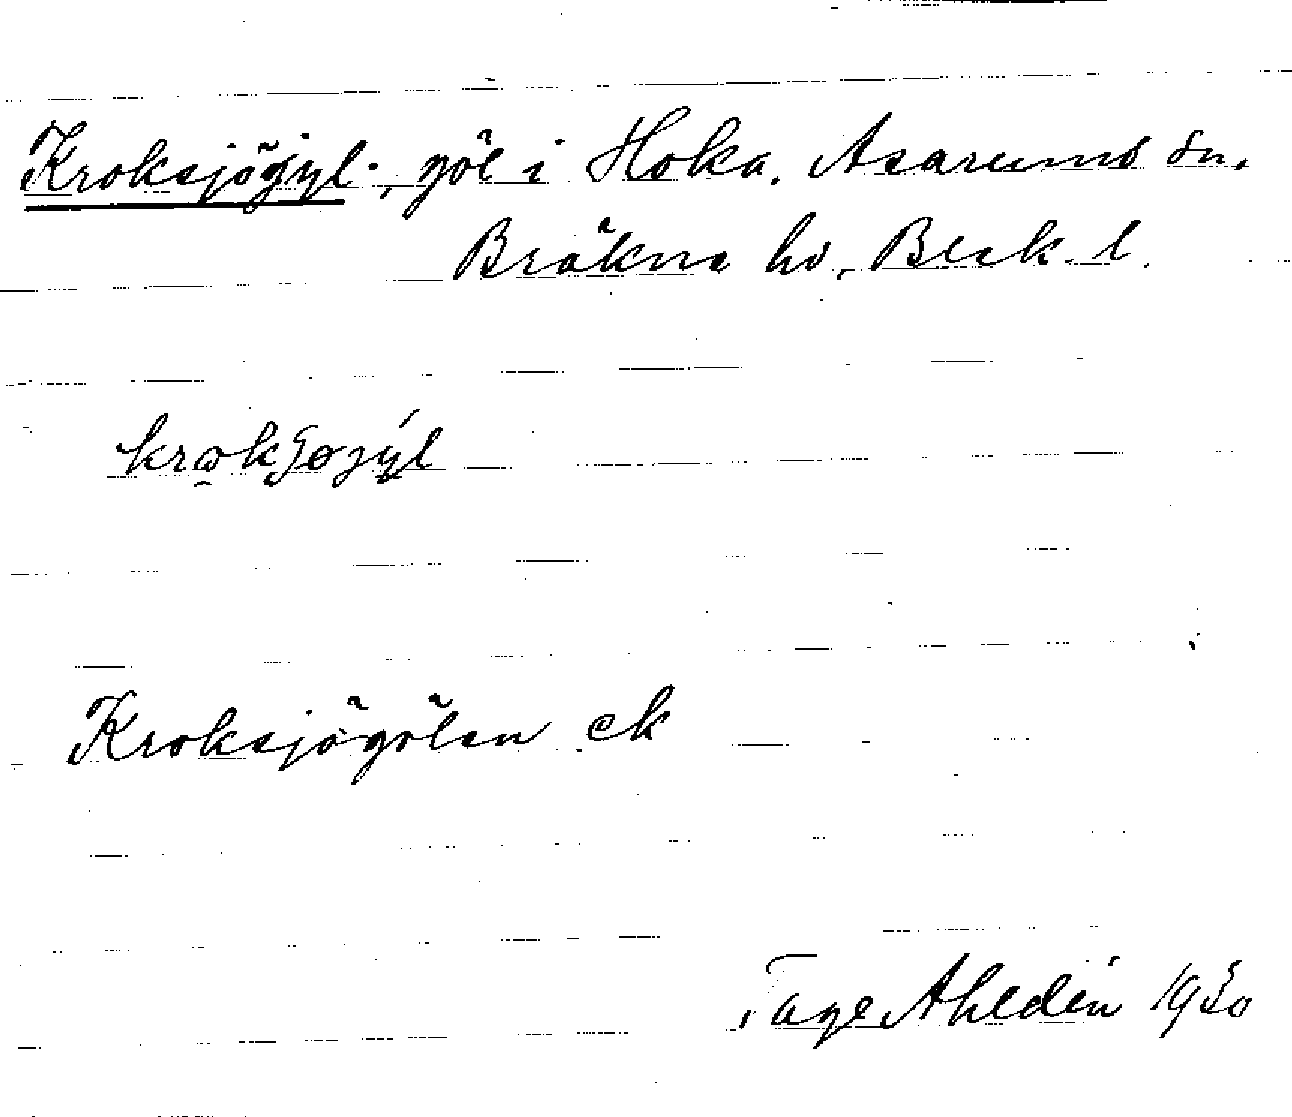 Kroksjögyl, göl i Hoka. Asarums sn.
Bräkne hd, Blek. l.
Kroksjögölen ek
Tage Ahldén 1930